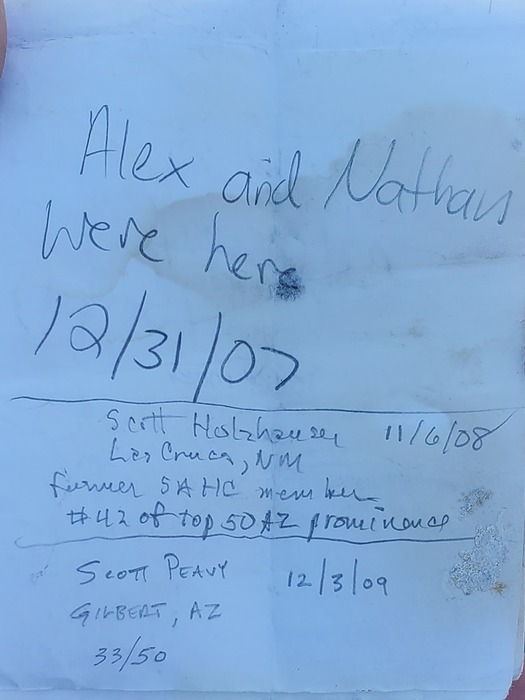 Alex and Nathan
Were here
12/31/07
Scott Holzhauser 11/6/08
Las Cruces, NM
former SAHC member
#42 of top 50 AZ prominence
SCOTT PEAVY 12/3/09
GILBERT, AZ
33/50